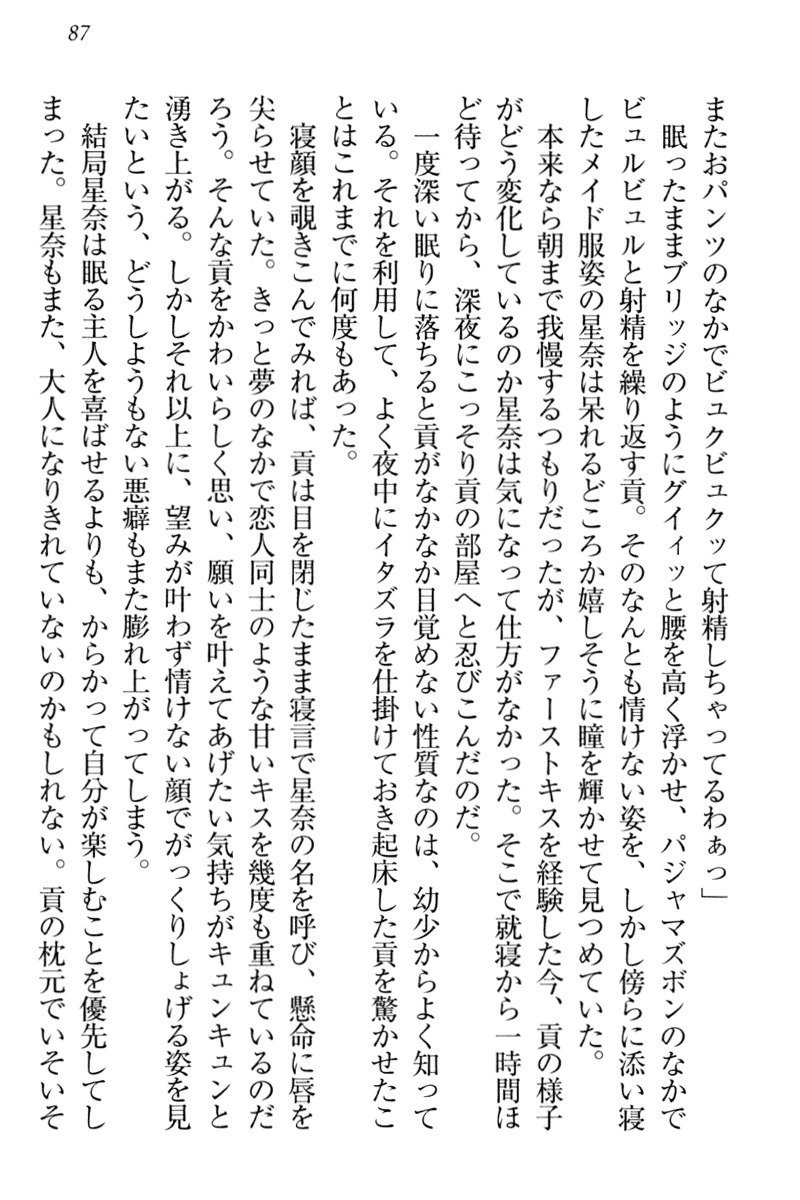 87
またおパンツのなかでビュクビュクッて射精しちゃってるわぁっ」
眠ったままブリッジのようにグイィッと腰を高く浮かせ、パジャマズボンのなかで
ビュルビュルと射精を繰り返す貢。そのなんとも情けない姿を、しかし傍らに添い寝
したメイド服姿の星奈は呆れるどころか嬉しそうに瞳を輝かせて見つめていた。
本来なら朝まで我慢するつもりだったが、ファーストキスを経験した今、貢の様子
がどう変化しているのか星奈は気になって仕方がなかった。そこで就寝から一時間ほ
ど待ってから、深夜にこっそり貢の部屋へと忍びこんだのだ。
一度深い眠りに落ちると貢がなかなか目覚めない性質なのは、幼少からよく知って
いる。それを利用して、よく夜中にイタズラを仕掛けておき起床した貢を驚かせたこ
とはこれまでに何度もあった。
寝顔を覗きこんでみれば、貢は目を閉じたまま寝言で星奈の名を呼び、懸命に唇を
尖らせていた。きっと夢のなかで恋人同士のような甘いキスを幾度も重ねているのだ
ろう。そんな貢をかわいらしく思い、願いを叶えてあげたい気持ちがキュンキュンと
湧き上がる。しかしそれ以上に、望みが叶わず情けない顔でがっくりしょげる姿を見
たいという、どうしようもない悪癖もまた膨れ上がってしまう。
結局星奈は眠る主人を喜ばせるよりも、からかって自分が楽しむことを優先してし
まった。星奈もまた、大人になりきれていないのかもしれない。貢の枕元でいそいそ